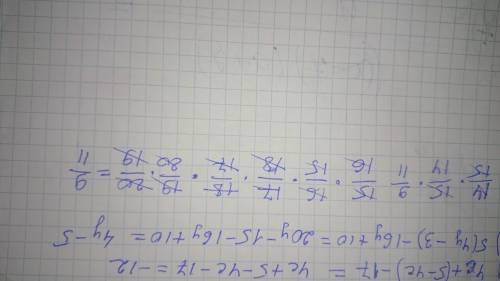 4c+(5-4c)-17 = 4c+5-4c-17 = -12
) 5(4y-3)-16y+10=20y-15-16y+10 = 4y-5
14/15 · 15/14 · 9/11 · 15/16 · 16/15 · 17/18 · 18/17 · 19/20 · 20/19 = 9/11